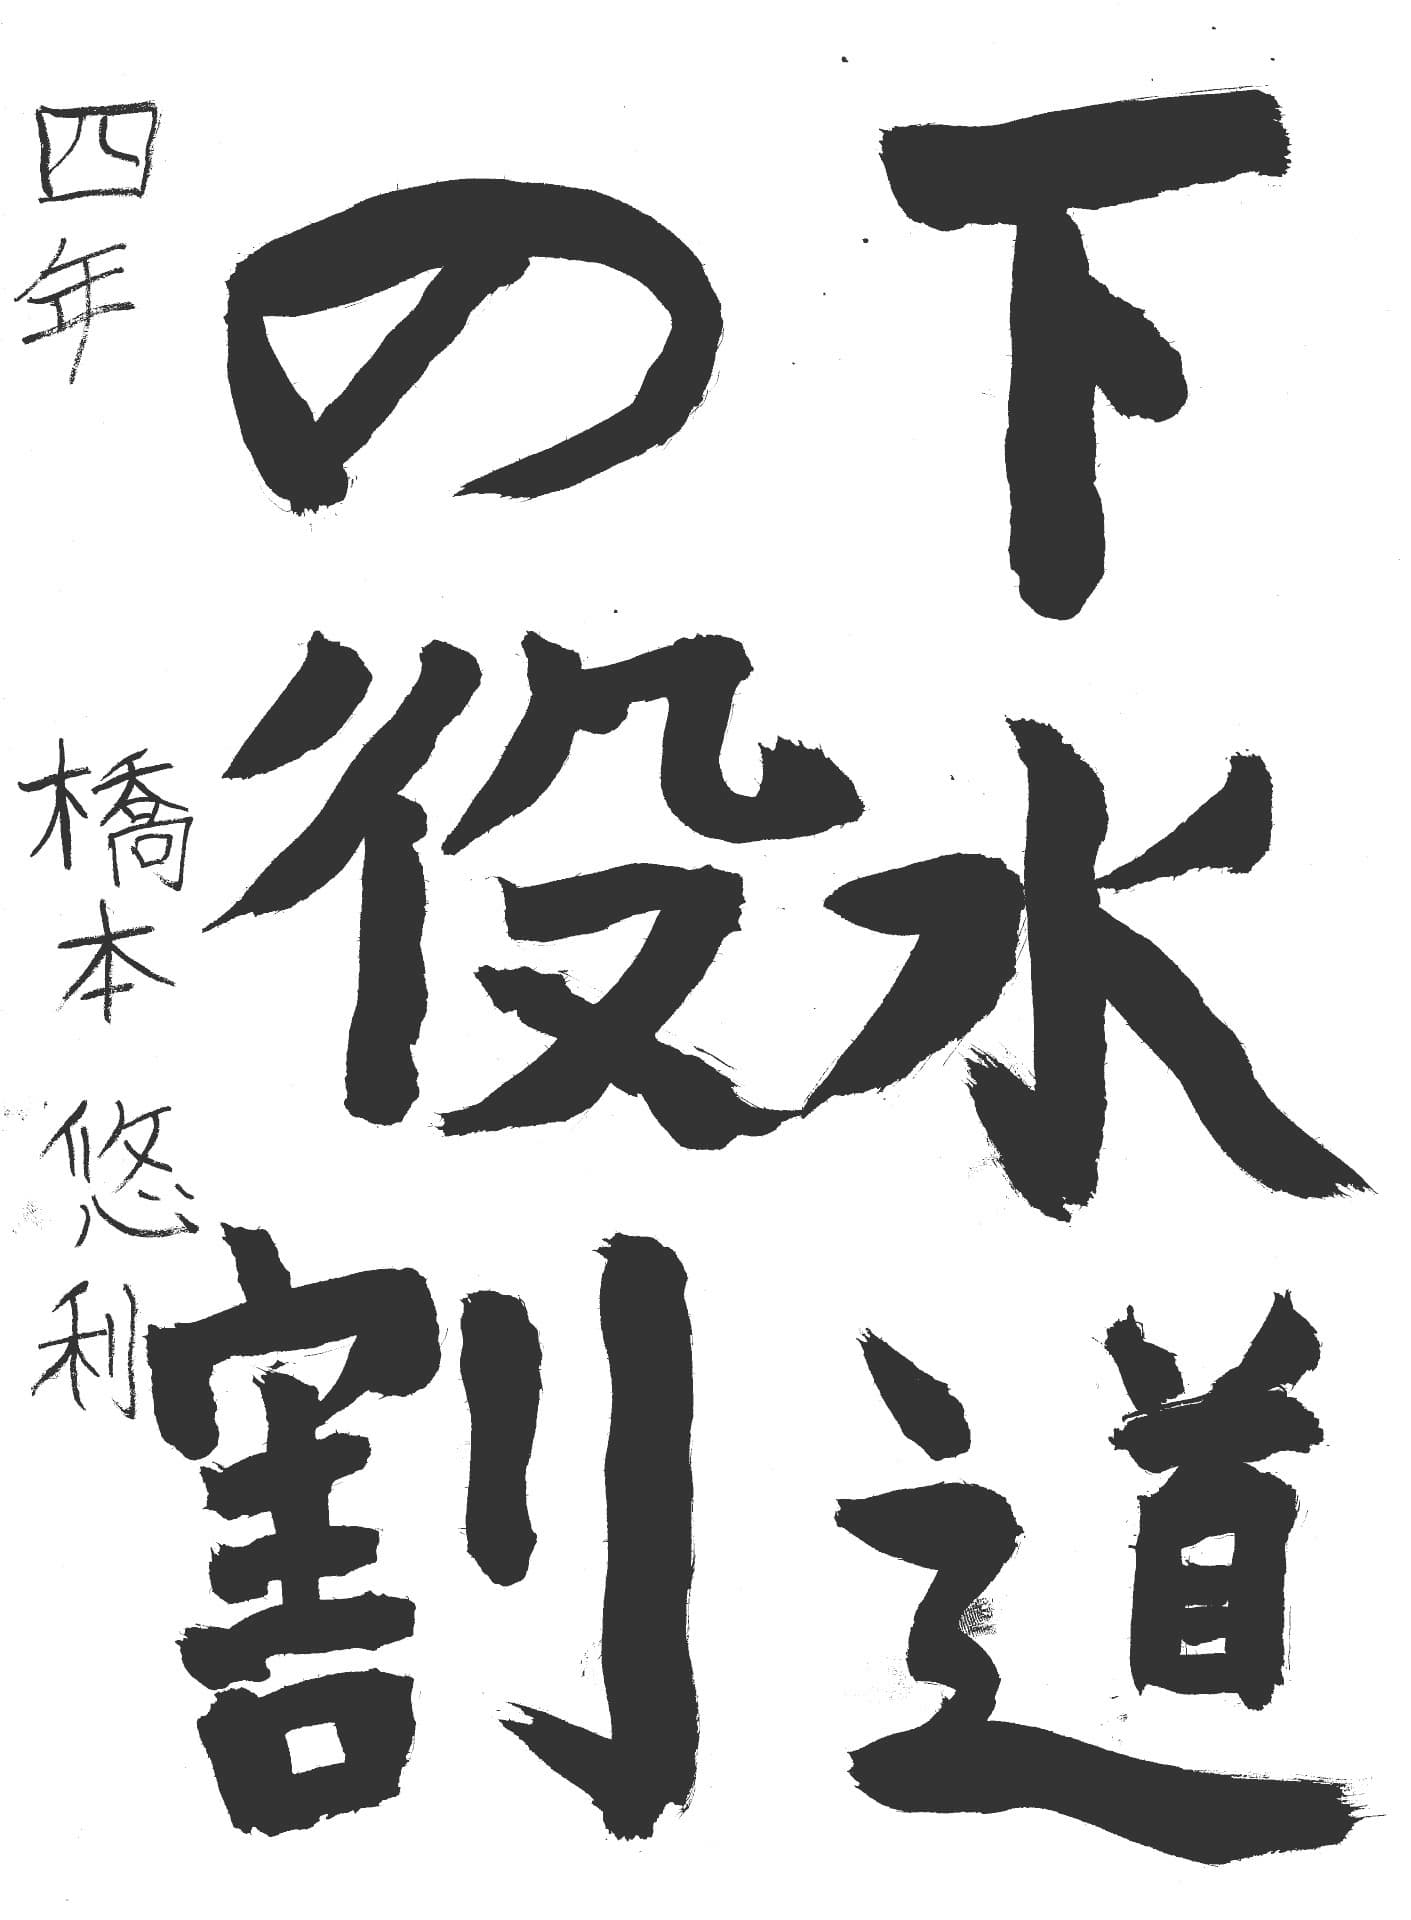 下水道
の役割
四年 橋本悠利